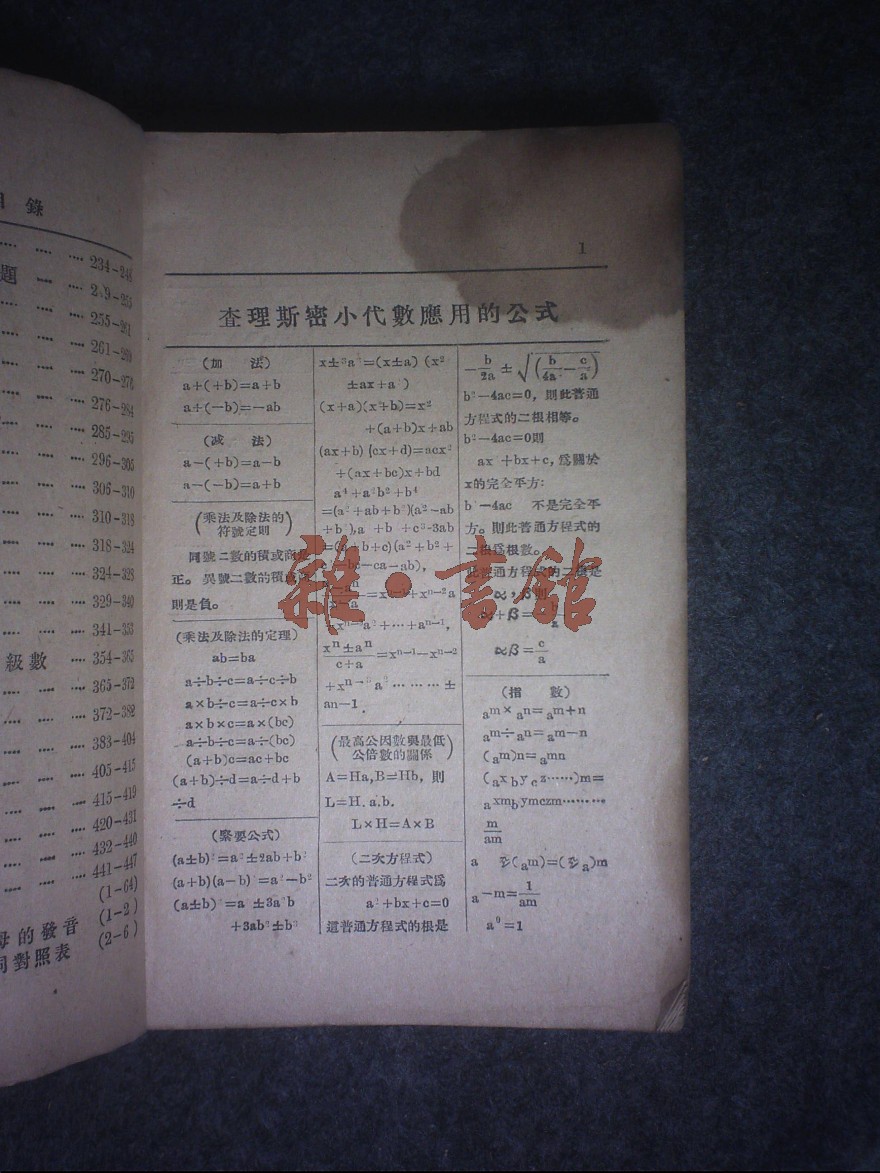 目錄
234-248
題
255-261
261-269
270-276
276-284
285-295
296-305
306-310
310-318
318-324
324-328
329-340
341-353
級數 354-365
365-372
372-382
383-404
405-415
415-419
420-431
432-440
441-447
(1-64)
(1-2)
母的發音
(2-6)
詞對照表
1
查理斯密小代數應用的公式
(加 法)
a+(+b)=a+b
a+(-b)=-ab
(減 法)
a-(+b)=a-b
a-(-b)=a+b
(乘法及除法的
符號定則)
同號二數的積或商是
正。異號二數的積
則是負。
(乘法及除法的定理)
ab=ba
a÷b÷c=a÷c÷b
a×b÷c=a÷c×b
a×b×c=a×(bc)
a÷b÷c=a÷(bc)
(a+b)c=ac+bc
(a+b)÷d=a÷d+b
÷d
(緊要公式)
(a±b)²=a²±2ab+b²
(a+b)(a-b)=a²-b²
(a±b)³=a ±3a²b
+3ab²±b³
x±³a³=(x±a) (x²
±ax+a²)
(x+a)(x+b)=x²
+(a+b)x+ab
(ax+b) (cx+d)=acx²
+(ax+bc)x+bd
a⁴+a²b²+b⁴
=(a²+ab+b²)(a²-ab
+b²),a +b +c³-3ab
=(a+b+c)(a²+b²+
-bc-ca-ab),
+xⁿ⁻²a
a²+⋯+aⁿ⁻¹,
xⁿ±aⁿ
c+a
=xⁿ⁻¹-xⁿ⁻²
+xⁿ⁻³a²⋯⋯⋯±
an-1.
(最高公因數與最低
公倍數的關係)
A=Ha,B=Hb, 則
L=H.a.b.
L×H=A×B
(二次方程式)
二次的普通方程式爲
a²+bx+c=0
這普通方程式的根是
-b/2a ± √(b/4a²-c/a)
b²-4ac=0, 則此普通
方程式的二根相等。
b²-4ac=0則
ax²+bx+c, 爲關於
x的完全平方:
b²-4ac 不是完全平
方。則此普通方程式的
二根爲根數。
此普通方程式的二根是
α, β則
α+β=-b/a
αβ=c/a
(指 數)
am×an=am+n
am÷an=am-n
(am)n=amn
(axbycz⋯⋯)m=
axmbymczm⋯⋯⋯
m
am
a (am)=(a)m
a-m=1/am
a⁰=1
雜·書館